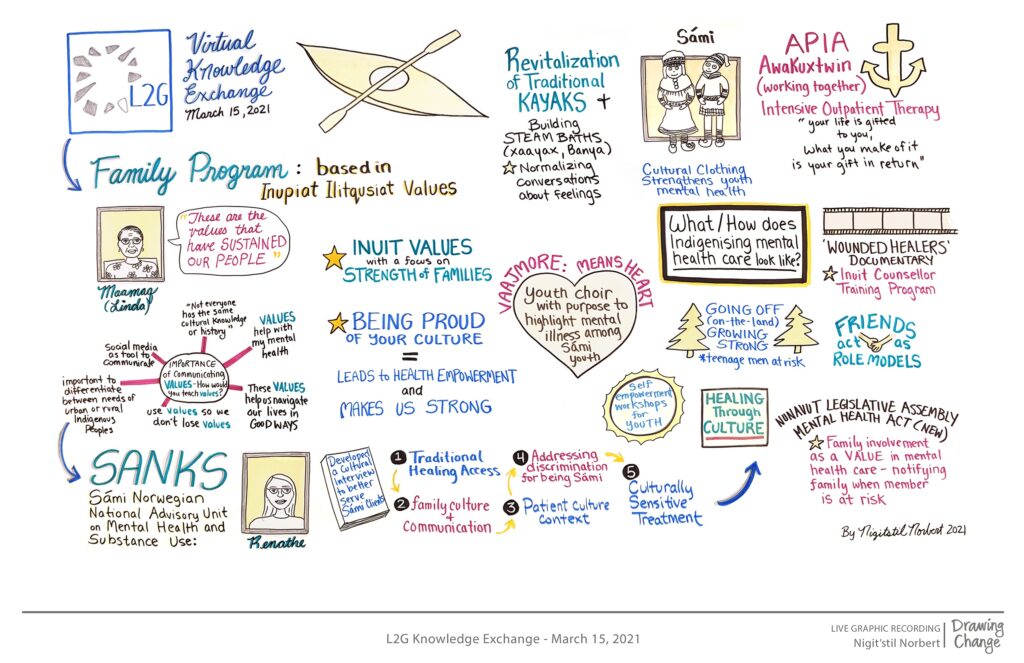 L2G
Virtual
Knowledge
Exchange
March 15, 2021
Family Program: based in
Inupiat Ilitqusiat Values
"These are the
values that
have SUSTAINED
OUR PEOPLE"
Maamaq
(Linda)
"Not everyone
has the same
cultural knowledge
or history"
VALUES
help with
my mental
health
Social media
as tool to
communicate
IMPORTANCE
of Communicating
VALUES - How would
you teach values?
important to
differentiate
between needs of
urban or rural
Indigenous
Peoples
use values so we
don't lose values
These VALUES
help us navigate
our lives in
GOOD WAYS
INUIT VALUES
with a focus on
STRENGTH of FAMILIES
BEING PROUD
OF YOUR CULTURE
=
LEADS to HEALTH EMPOWERMENT
and
MAKES US STRONG
Revitalization
of Traditional
KAYAKS +
Building
STEAM BATHS
(xaayax, Banya)
Normalizing
conversations
about feelings
Sámi
Cultural Clothing
Strengthens youth
mental health
APIA
Awakuxtwin
(working together)
Intensive Outpatient Therapy
"your life is gifted
to you,
what you make of it
is your gift in return"
VAAJMORE: MEANS HEART
Youth choir
with purpose to
highlight mental
illness among
Sámi
youth
What/How does
Indigenising mental
health care look like?
'WOUNDED HEALERS'
DOCUMENTARY
Inuit Counsellor
Training Program
GOING OFF
(on-the-land)
GROWING
STRONG
*teenage men at risk
FRIENDS
act as
ROLE MODELS
Self
empowerment
workshops
for
YOUTH
HEALING
Through
CULTURE
NUNAVUT LEGISLATIVE ASSEMBLY
MENTAL HEALTH ACT (NEW)
Family involvement
as a VALUE in mental
health care - notifying
family when member
is at risk
SANKS
Sámi Norwegian
National Advisory Unit
on Mental Health and
Substance Use:
Renathe
Developed
a Cultural
Interview
to better
serve
Sámi Clients
1 Traditional
Healing Access
2 family culture
+
Communication
3 Patient culture
context
4 Addressing
discrimination
for being Sámi
5
Culturally
Sensitive
Treatment
By Nigitstil Norbert 2021
L2G Knowledge Exchange - March 15, 2021
LIVE GRAPHIC RECORDING
Nigit'stil Norbert
Drawing
Change